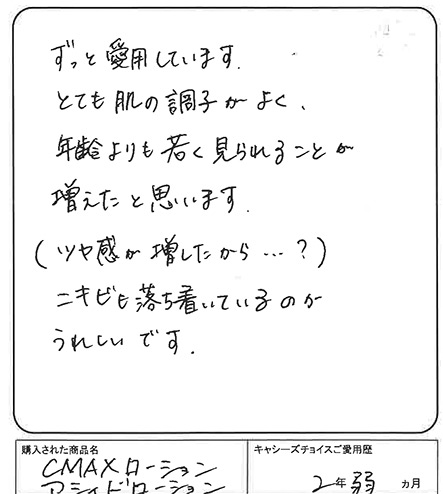 ずっと愛用しています.
とても肌の調子がよく、
年齢よりも若く見られることが
増えたと思います.
(ツヤ感が増したから…?)
ニキビも落ち着いているのが
うれしいです.
購入された商品名
キャシーズチョイスご愛用歴
CMAXローション
アシィドローション
2年弱 カ月